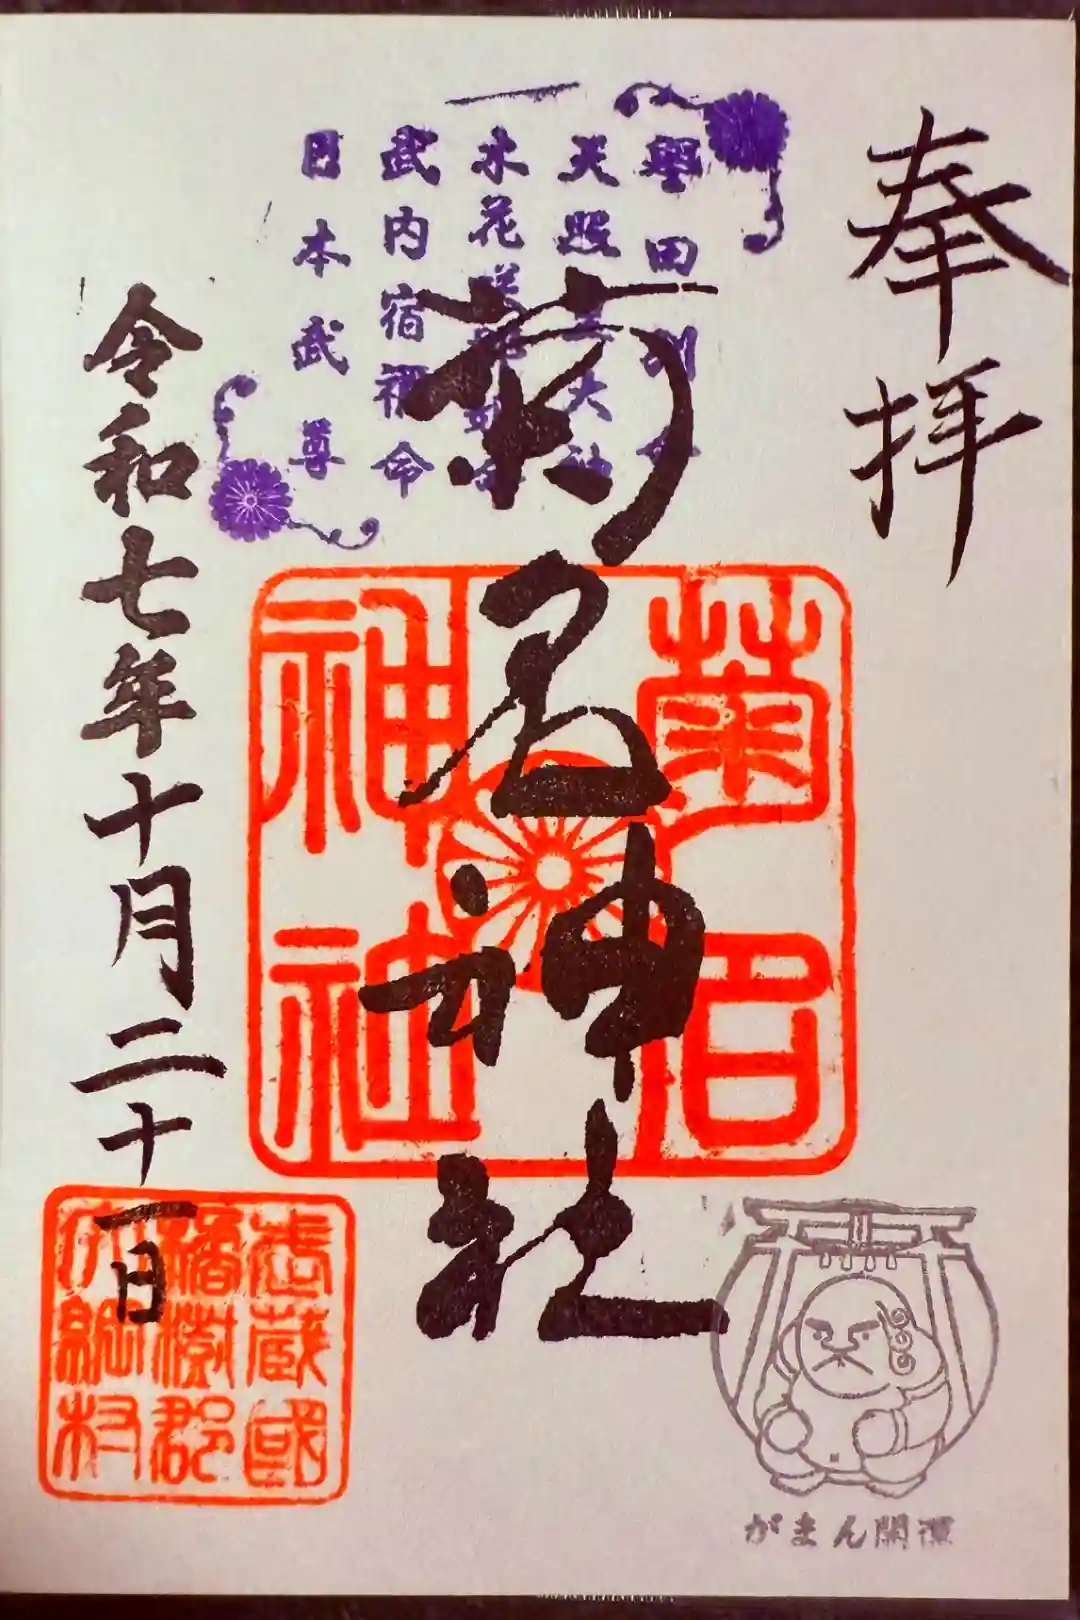 奉拝
譽田別命
天照皇大神
木花咲耶姫命
武内宿禰命
日本武尊
菊名神社
菊名
神社
令和七年十月二十一日
武蔵國
橘樹郡
大綱村
がまん開運